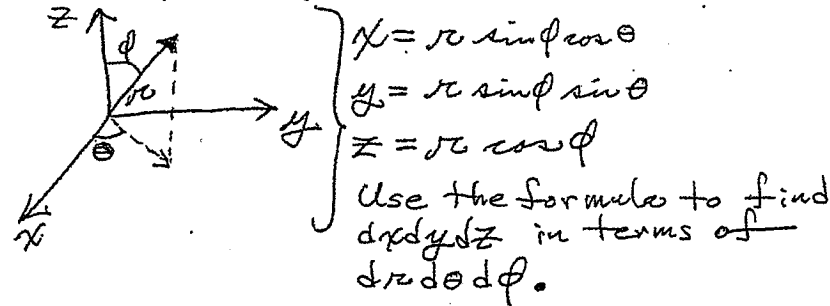 z
φ
r
y
θ
x
x = r sinφ cosθ
y = r sinφ sinθ
z = r cosφ
Use the formula to find
dxdydz in terms of
drdθdφ.